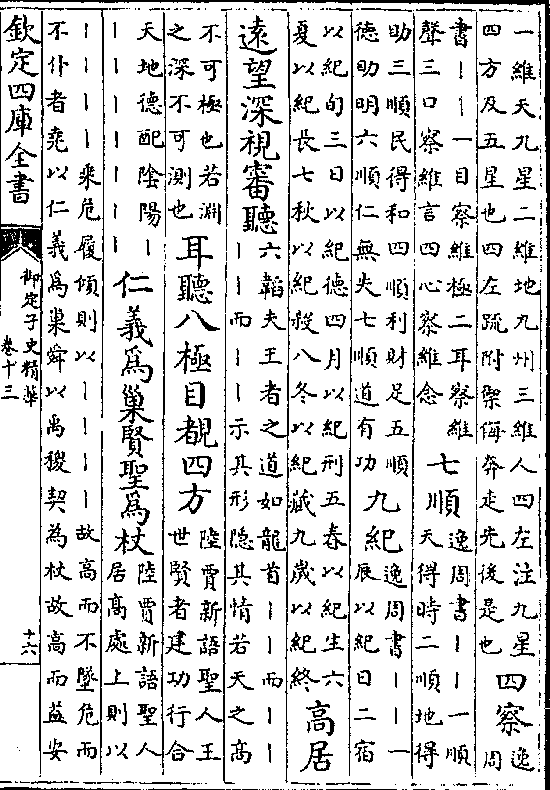 一維天九星二維地九州三維人四左注九星
四方及五星也四左疏附禦侮奔走先後是也
四察
逸
周
書丨丨一目察維極二耳察維
聲三口察維言四心察維念
七順
逸周書丨丨一順
天得時二順地得
助三順民得和四順利財足五順
德助明六順仁無失七順道有功
九紀
逸周書丨丨一
辰以紀日二宿
以紀旬三日以紀德四月以紀刑五春以紀生六
夏以紀長七秋以紀殺八冬以紀藏九歲以紀終
高居
遠望深視審聽
六韜夫王者之道如龍首丨丨而丨
丨丨而丨丨示其形隱其情若天之高
不可極也若淵
之深不可測也
耳聽八極目覩四方
陸賈新語聖人王
世賢者建功行合
天地德配陰陽丨
丨丨丨丨丨丨丨
仁義為巢賢聖為杖
陸賈新語聖人
居高處上則以
丨丨丨丨乘危履傾則以丨丨丨丨故高而不墜危而
不仆者堯以仁義為巢舜以禹稷契為杖故高而益安
欽定四庫全書
御定子史精華
卷十三
十六